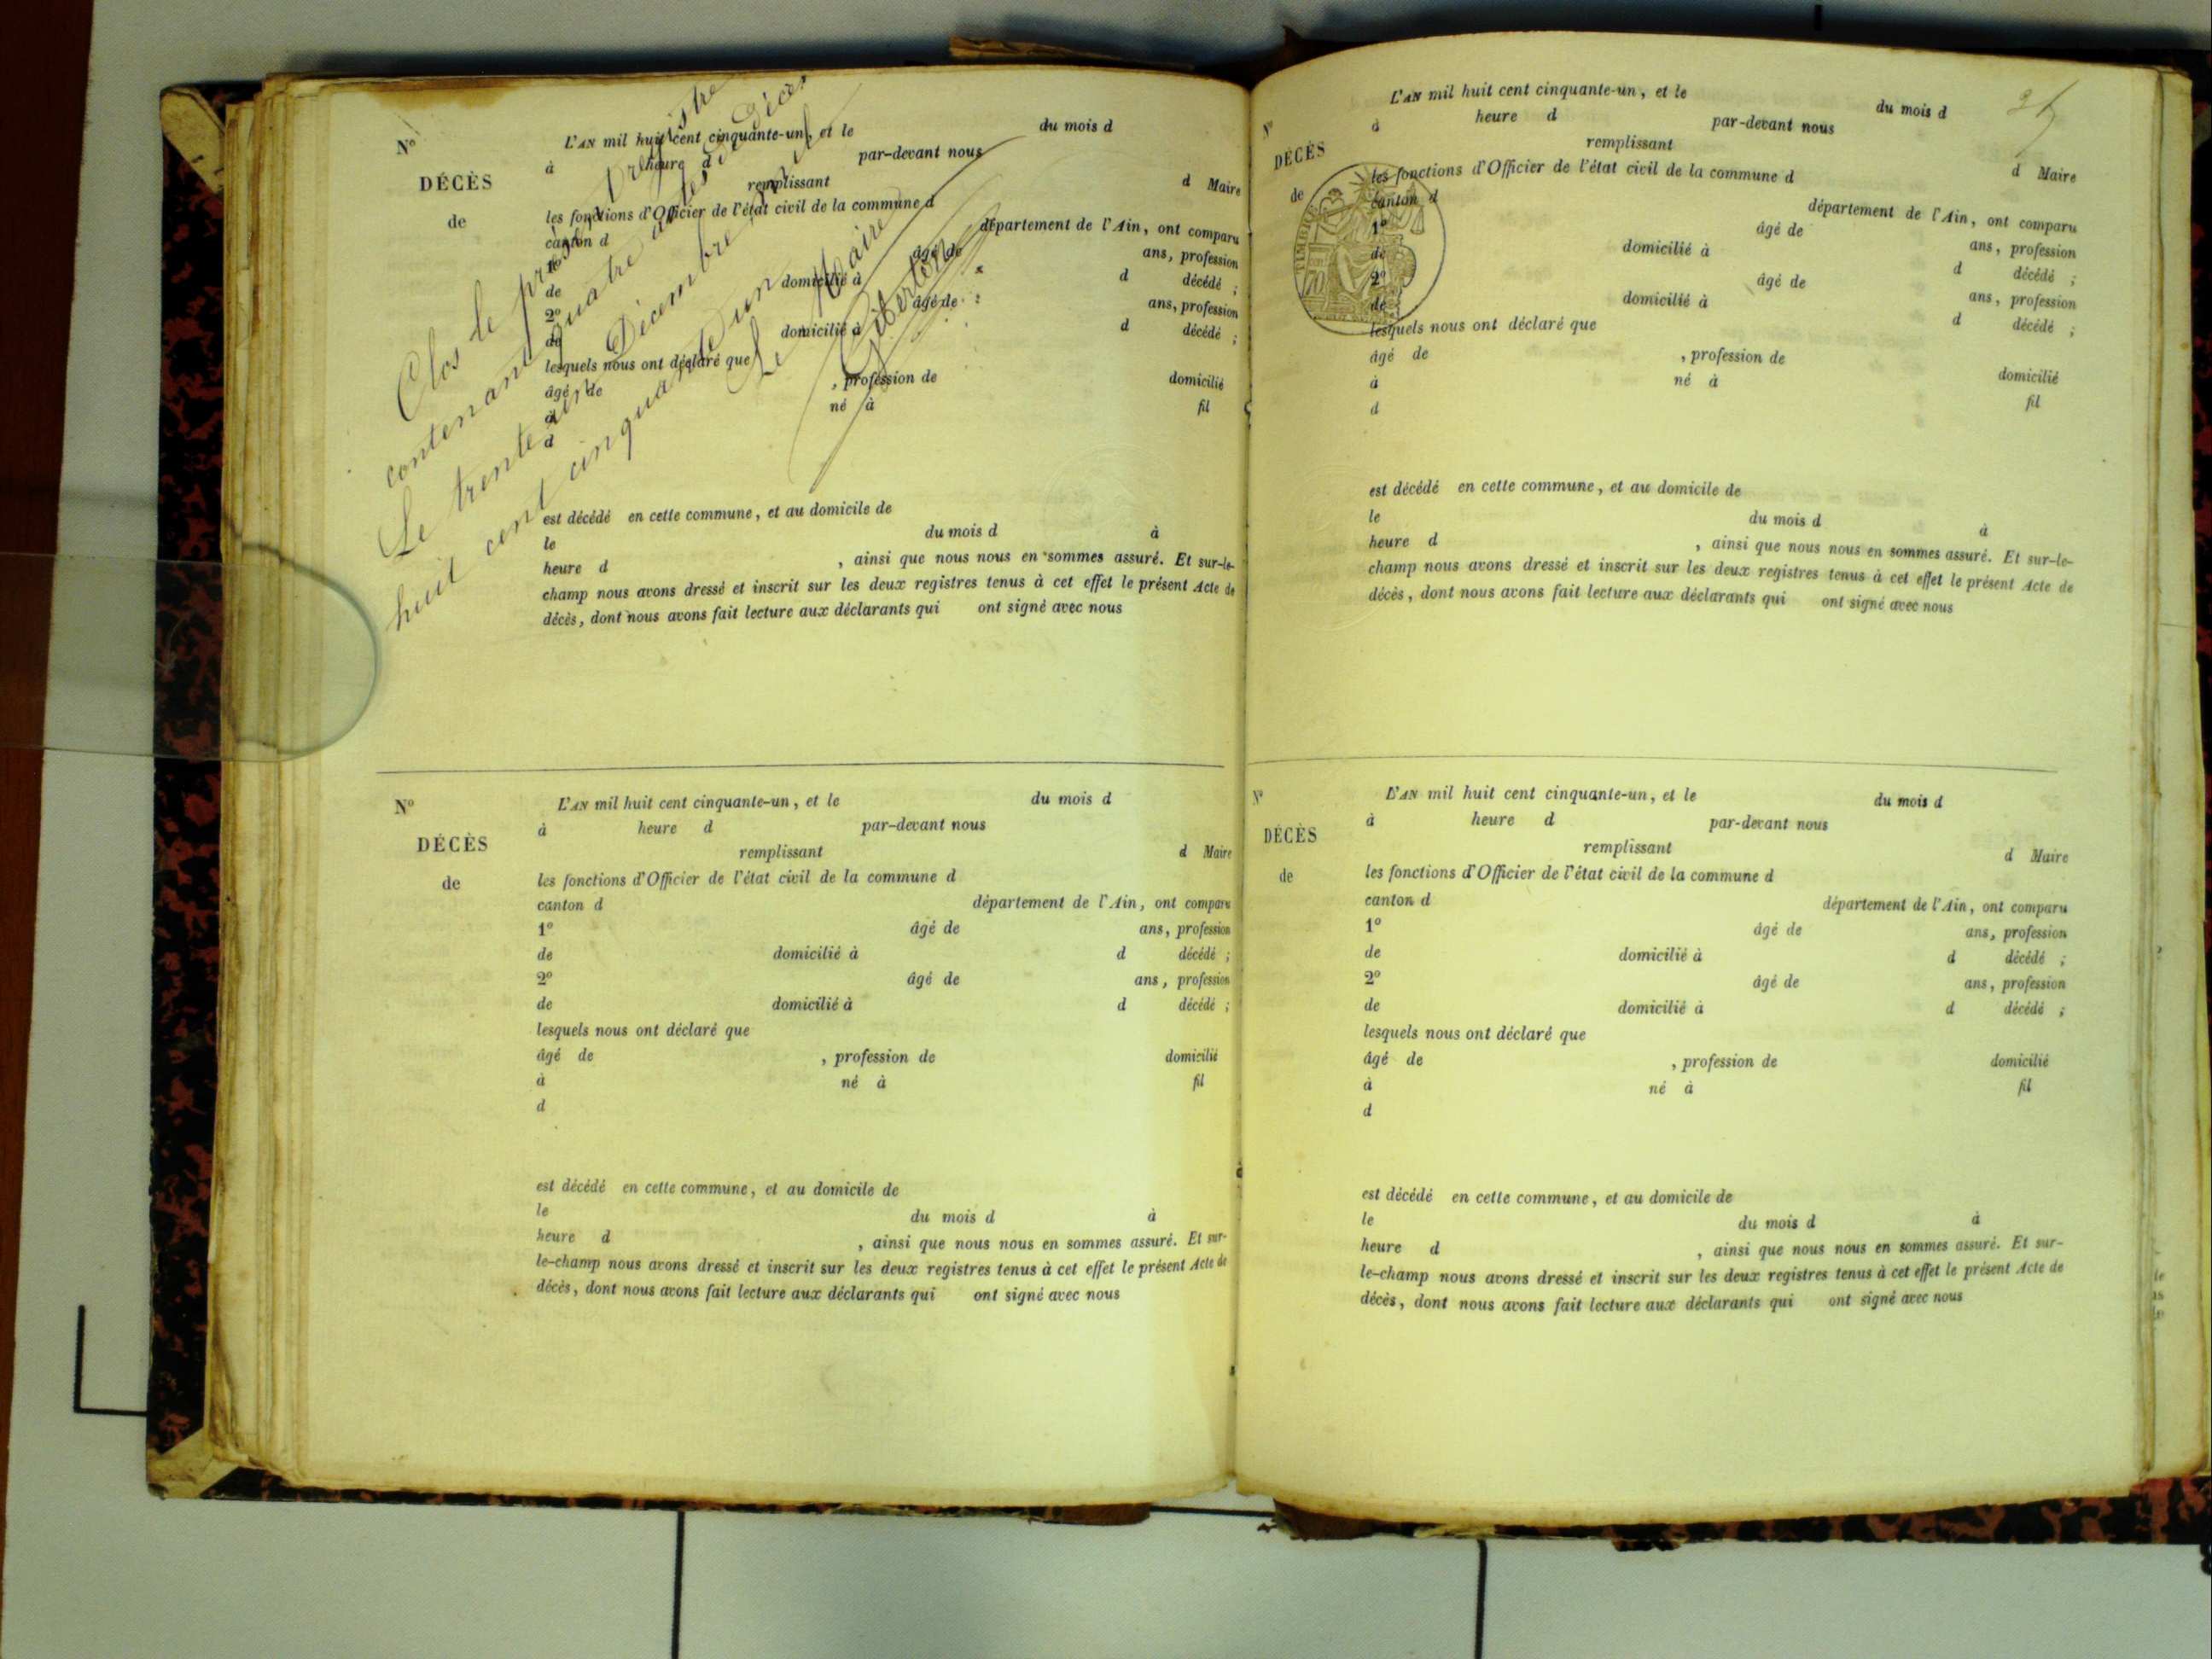 Clos le présent registre
contenant quatre actes de Décès
Le trente un Décembre mil
huit cent cinquante un
Le Maire
N°
DÉCÈS
de
L'AN mil huit cent cinquante-un, et le du mois d
à heure d par-devant nous
remplissant d Maire
les fonctions d'Officier de l'état civil de la commune d
canton d département de l'Ain, ont comparu
1° âgé de ans, profession
de domicilié à d décédé ;
2° âgé de ans, profession
de domicilié à d décédé ;
lesquels nous ont déclaré que
âgé de , profession de domicilié
à né à fil
d
est décédé en cette commune, et au domicile de
le du mois d à
heure d , ainsi que nous nous en sommes assuré. Et sur-le-
champ nous avons dressé et inscrit sur les deux registres tenus à cet effet le présent Acte de
décès, dont nous avons fait lecture aux déclarants qui ont signé avec nous
N°
DÉCÈS
de
L'AN mil huit cent cinquante-un, et le du mois d
à heure d par-devant nous
remplissant d Maire
les fonctions d'Officier de l'état civil de la commune d
canton d département de l'Ain, ont comparu
1° âgé de ans, profession
de domicilié à d décédé ;
2° âgé de ans, profession
de domicilié à d décédé ;
lesquels nous ont déclaré que
âgé de , profession de domicilié
à né à fil
d
est décédé en cette commune, et au domicile de
le du mois d à
heure d , ainsi que nous nous en sommes assuré. Et sur-
le-champ nous avons dressé et inscrit sur les deux registres tenus à cet effet le présent Acte de
décès, dont nous avons fait lecture aux déclarants qui ont signé avec nous
N°
DÉCÈS
de
TIMBRE
L'AN mil huit cent cinquante-un, et le du mois d
à heure d par-devant nous
remplissant d Maire
les fonctions d'Officier de l'état civil de la commune d
canton d département de l'Ain, ont comparu
1° âgé de ans, profession
de domicilié à d décédé ;
2° âgé de ans, profession
de domicilié à d décédé ;
lesquels nous ont déclaré que
âgé de , profession de domicilié
à né à fil
d
est décédé en cette commune, et au domicile de
le du mois d à
heure d , ainsi que nous nous en sommes assuré. Et sur-le-
champ nous avons dressé et inscrit sur les deux registres tenus à cet effet le présent Acte de
décès, dont nous avons fait lecture aux déclarants qui ont signé avec nous
N°
DÉCÈS
de
L'AN mil huit cent cinquante-un, et le du mois d
à heure d par-devant nous
remplissant d Maire
les fonctions d'Officier de l'état civil de la commune d
canton d département de l'Ain, ont comparu
1° âgé de ans, profession
de domicilié à d décédé ;
2° âgé de ans, profession
de domicilié à d décédé ;
lesquels nous ont déclaré que
âgé de , profession de domicilié
à né à fil
d
est décédé en cette commune, et au domicile de
le du mois d à
heure d , ainsi que nous nous en sommes assuré. Et sur-
le-champ nous avons dressé et inscrit sur les deux registres tenus à cet effet le présent Acte de
décès, dont nous avons fait lecture aux déclarants qui ont signé avec nous